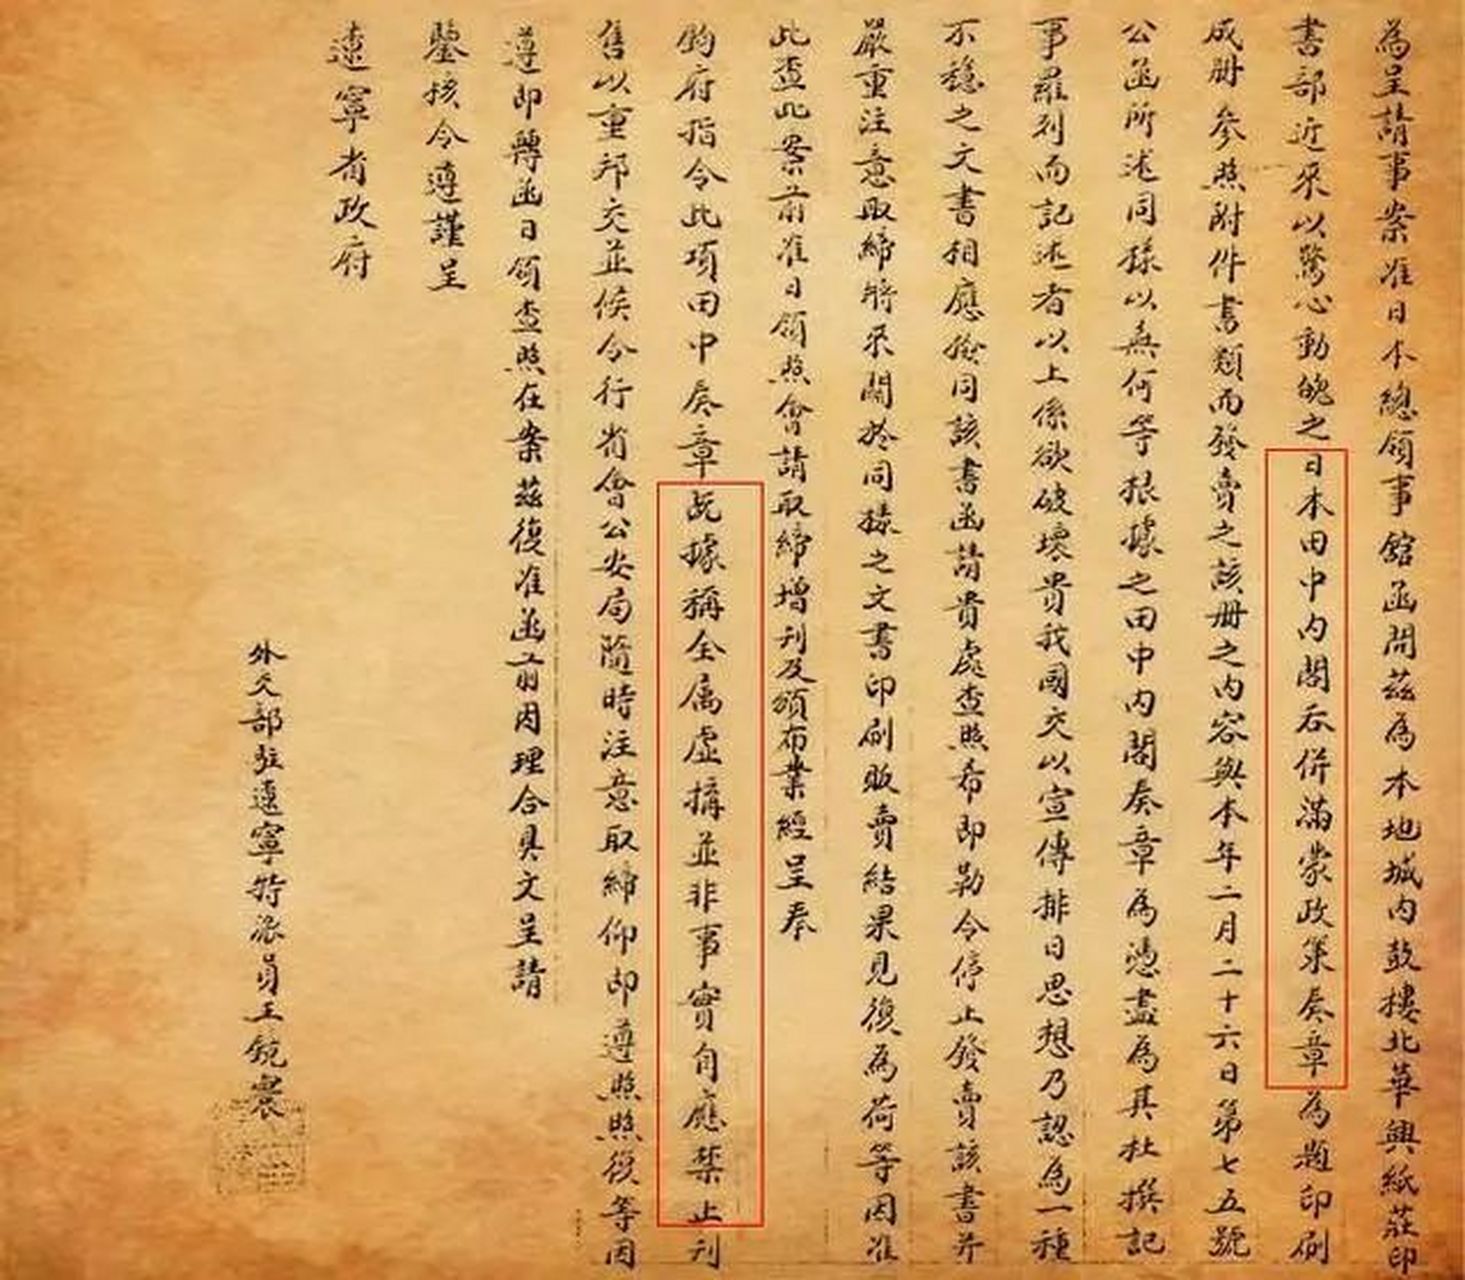 為呈請事案准日本總領事館函開茲為本地城內鼓樓北華興紙莊印
書部近來以驚心動魄之日本田中內閣吞併滿蒙政策奏章為題印刷
成冊參照附件書類而發賣之該冊之內容與本年二月二十六日第七五號
公函所述同樣以無何等根據之田中內閣奏章為憑盡為其杜撰記
事羅列而記述者以上係欲破壞貴我國交以宣傳排日思想乃認為一種
不穩之文書相應檢同該書函請貴處查照希即勒令停止發賣該書并
嚴重注意取締將來關於同樣之文書印刷販賣結果見復為荷等因准
此查此案前准日領照會請取締增刊及頒布業經呈奉
鈞府指令此項田中奏章既據稱全属虛搆並非事實自應禁止刊
售以重邦交並候令行省會公安局隨時注意取締仰即遵照照復等因
遵即轉函日領查照在案茲復准函前因理合具文呈請
鑒核令遵謹呈
遼寧省政府
外交部駐遼寧特派員王鏡寰